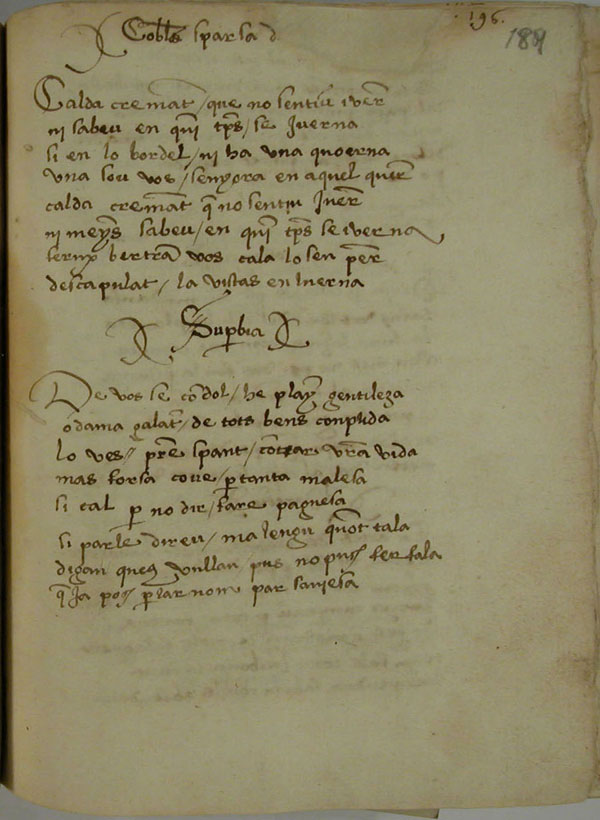 196.
184
Cobla sparsa d
Calda cremāt / que no sentiu ivern
ni sabeu en quī tp̄s / se Iverna
si en lo bordel / ni ha una quoerna
una sou vos / senyora en aquel quern
calda cremāt q̄ no sentiu Ivern
ni meyns sabeu / en quī tp̄s se iverna
bertrā vos cala lo sen pern
descapulat / la vistas en linerna
Supbia
De vos se cōdol / he plany gentileza
o dama galāt / de tots bens conplida
lo ves pre spant / vrā vida
mas forsa cove / p tanta malesa
si cal p no dir / fare pagnesa
si parle direu / ma lengu quōt tala
digan ques vullan pus no pusc fer fala
q̄ Ja pos p lar nom par saviesa